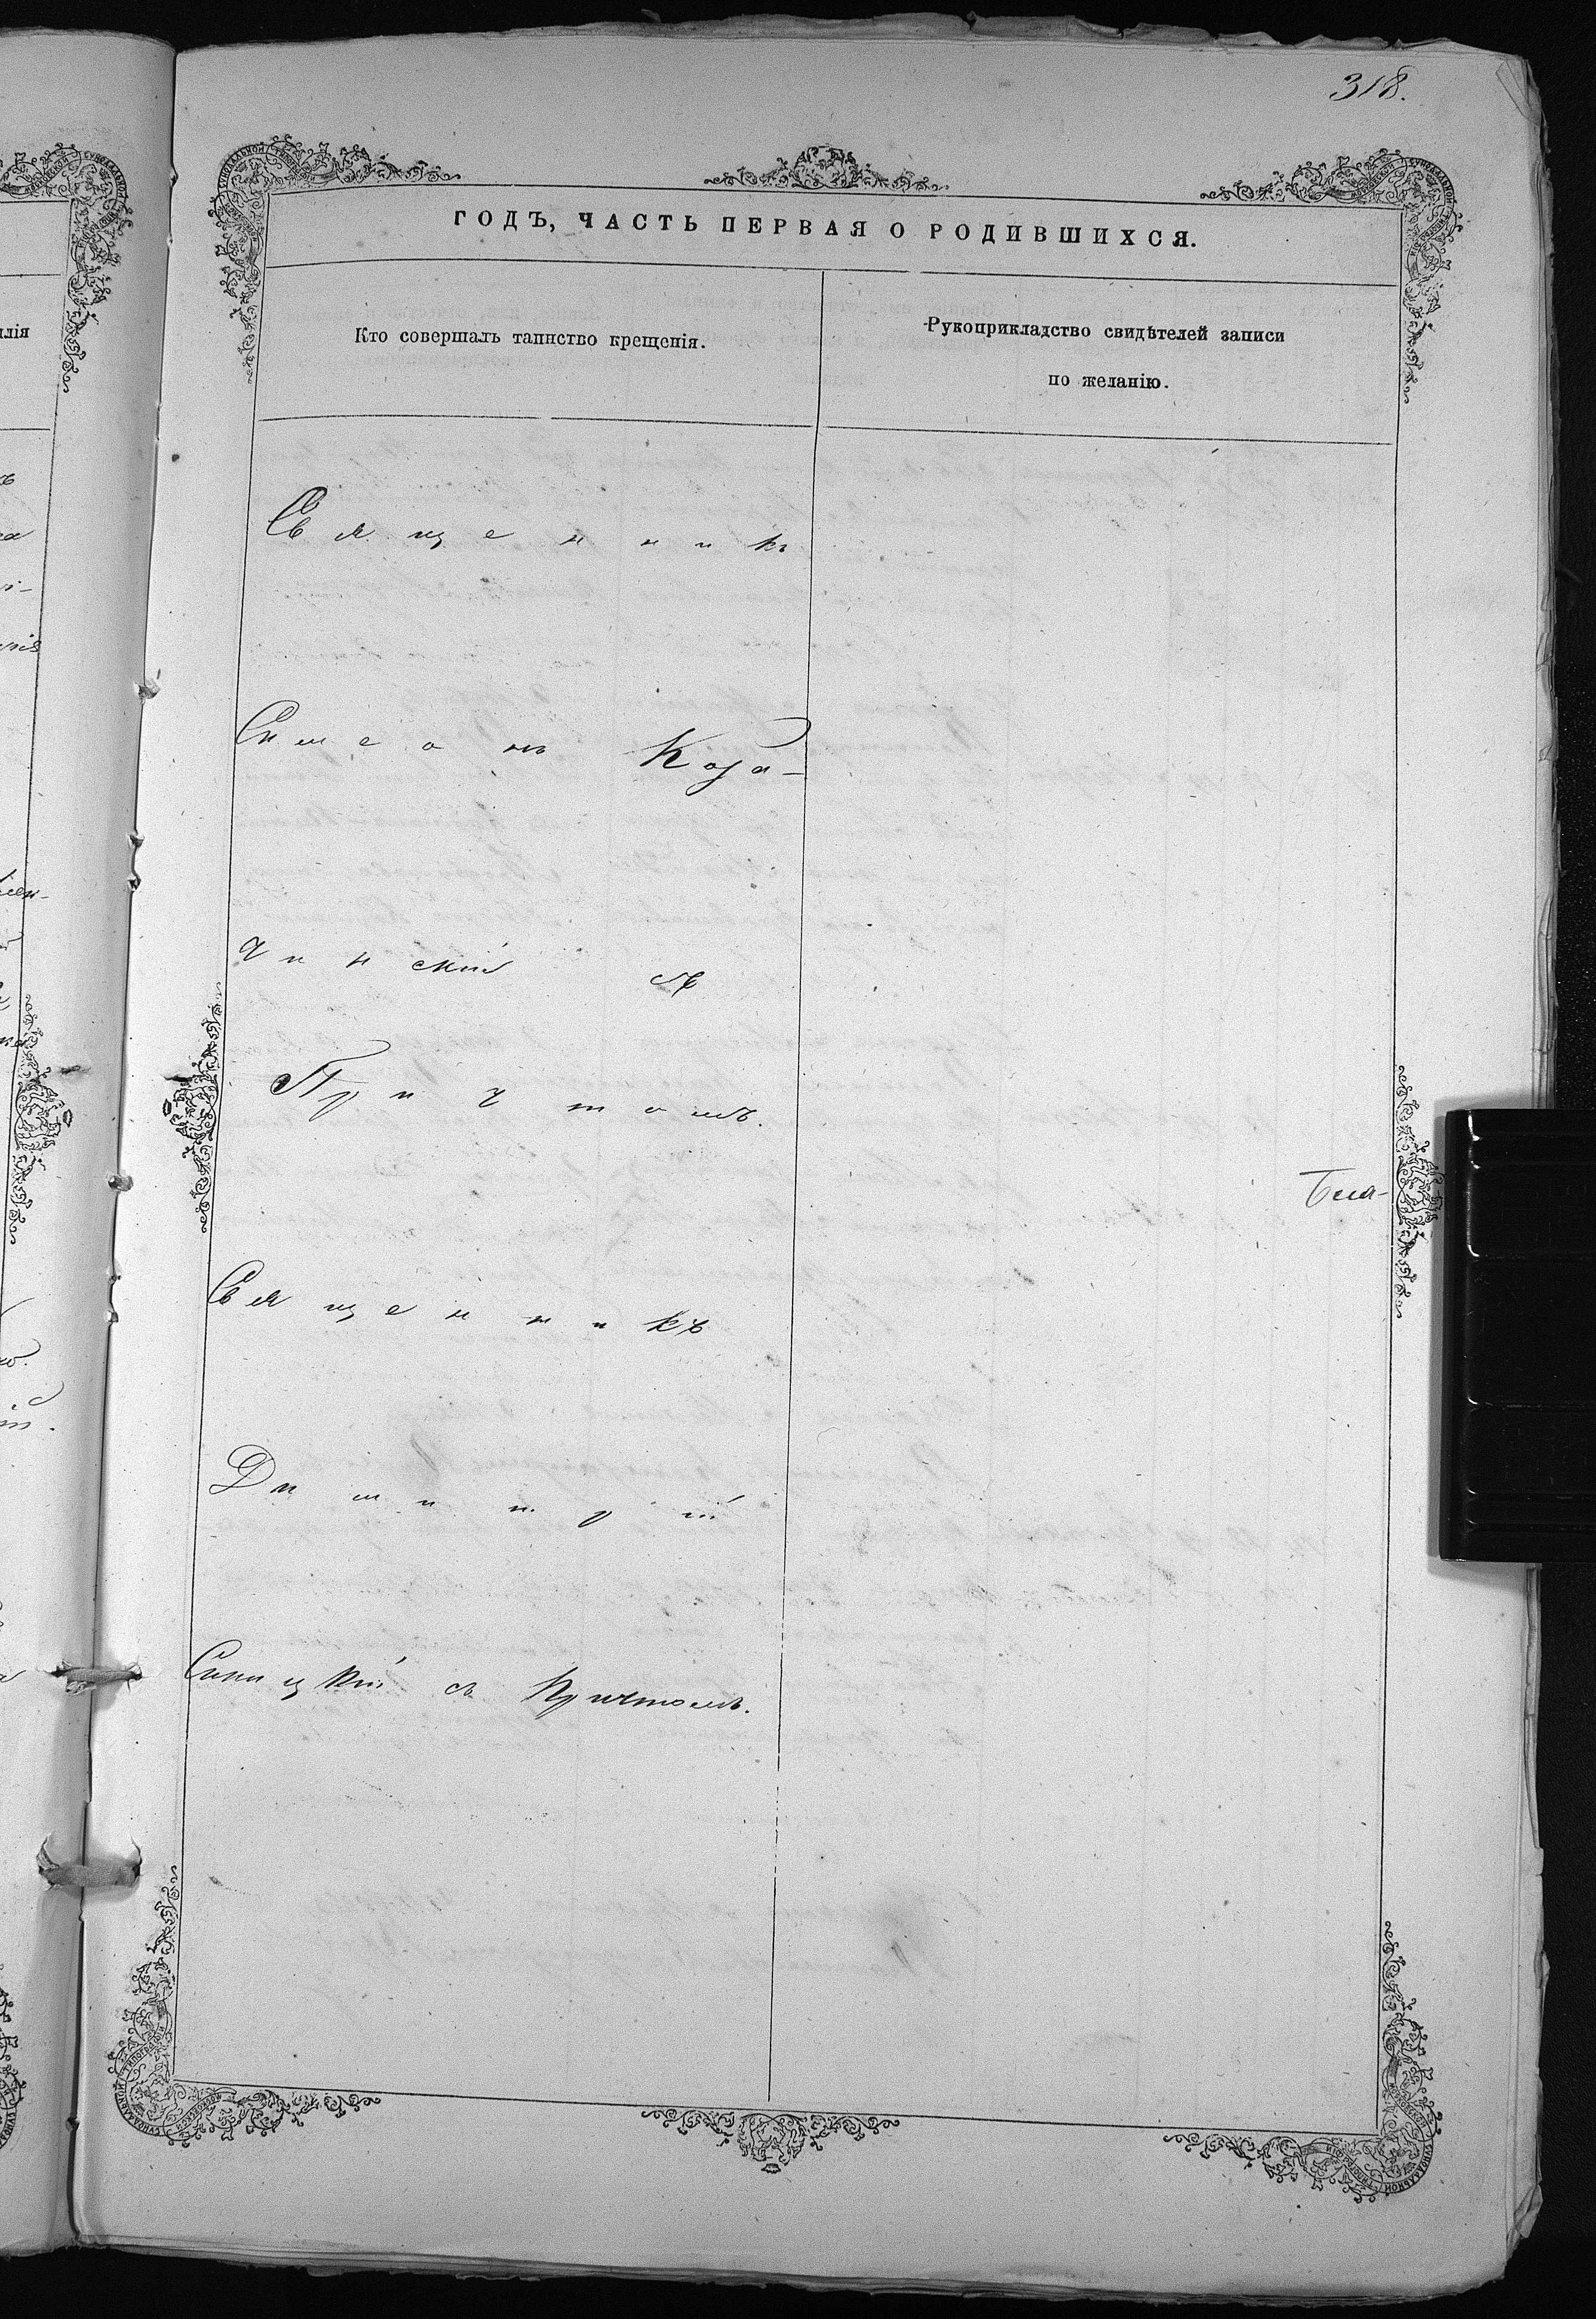 318.
ГОДЪ, ЧАСТЬ ПЕРВАЯ О РОДИВШИХСЯ.
Кто совершалъ таинство крещенія.
Рукоприкладство свидѣтелей записи
по желанію.
Священникъ
Симеонъ Коза-
чинскій съ
Причтомъ.
Священникъ
Димитрій
Синицкій съ Причтомъ.